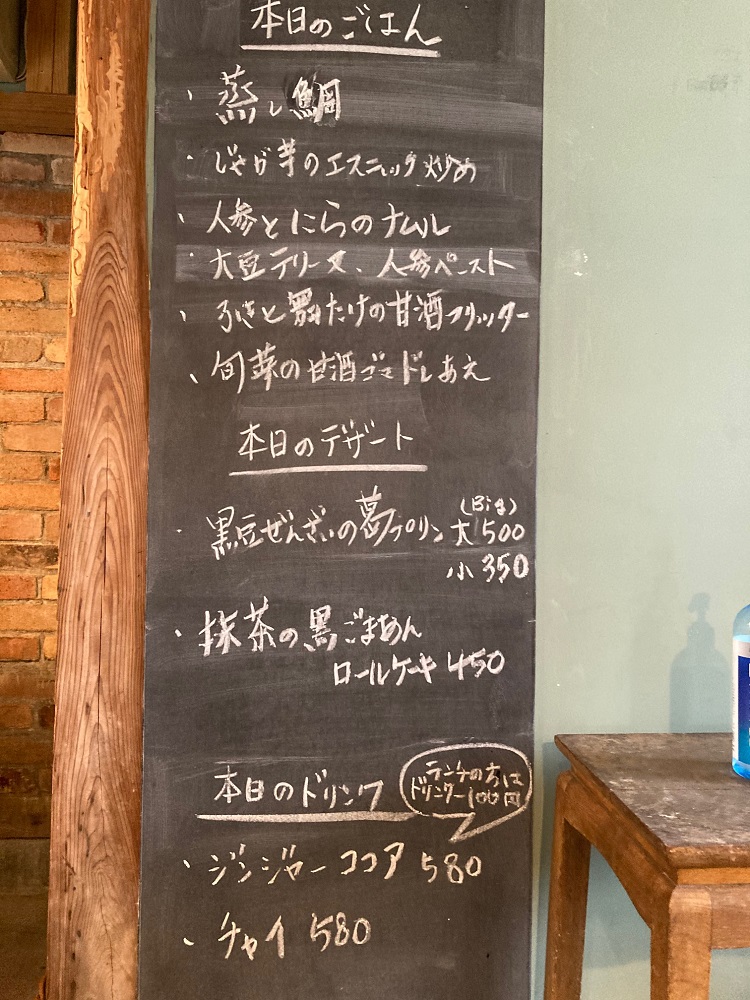 本日のごはん
・蒸し鯛
・じゃが芋のエスニック炒め
・人参とにらのナムル
・大豆テリーヌ、人参ペースト
・ふきと舞たけの甘酒フリッター
・旬菜の甘酒ごまドレあえ
本日のデザート
・黒豆ぜんざいの葛プリン 大 500
(Big)
小 350
・抹茶の黒ごまあん
ロールケーキ 450
本日のドリンク
ランチの方は
ドリンク-100円
・ジンジャーココア 580
・チャイ 580